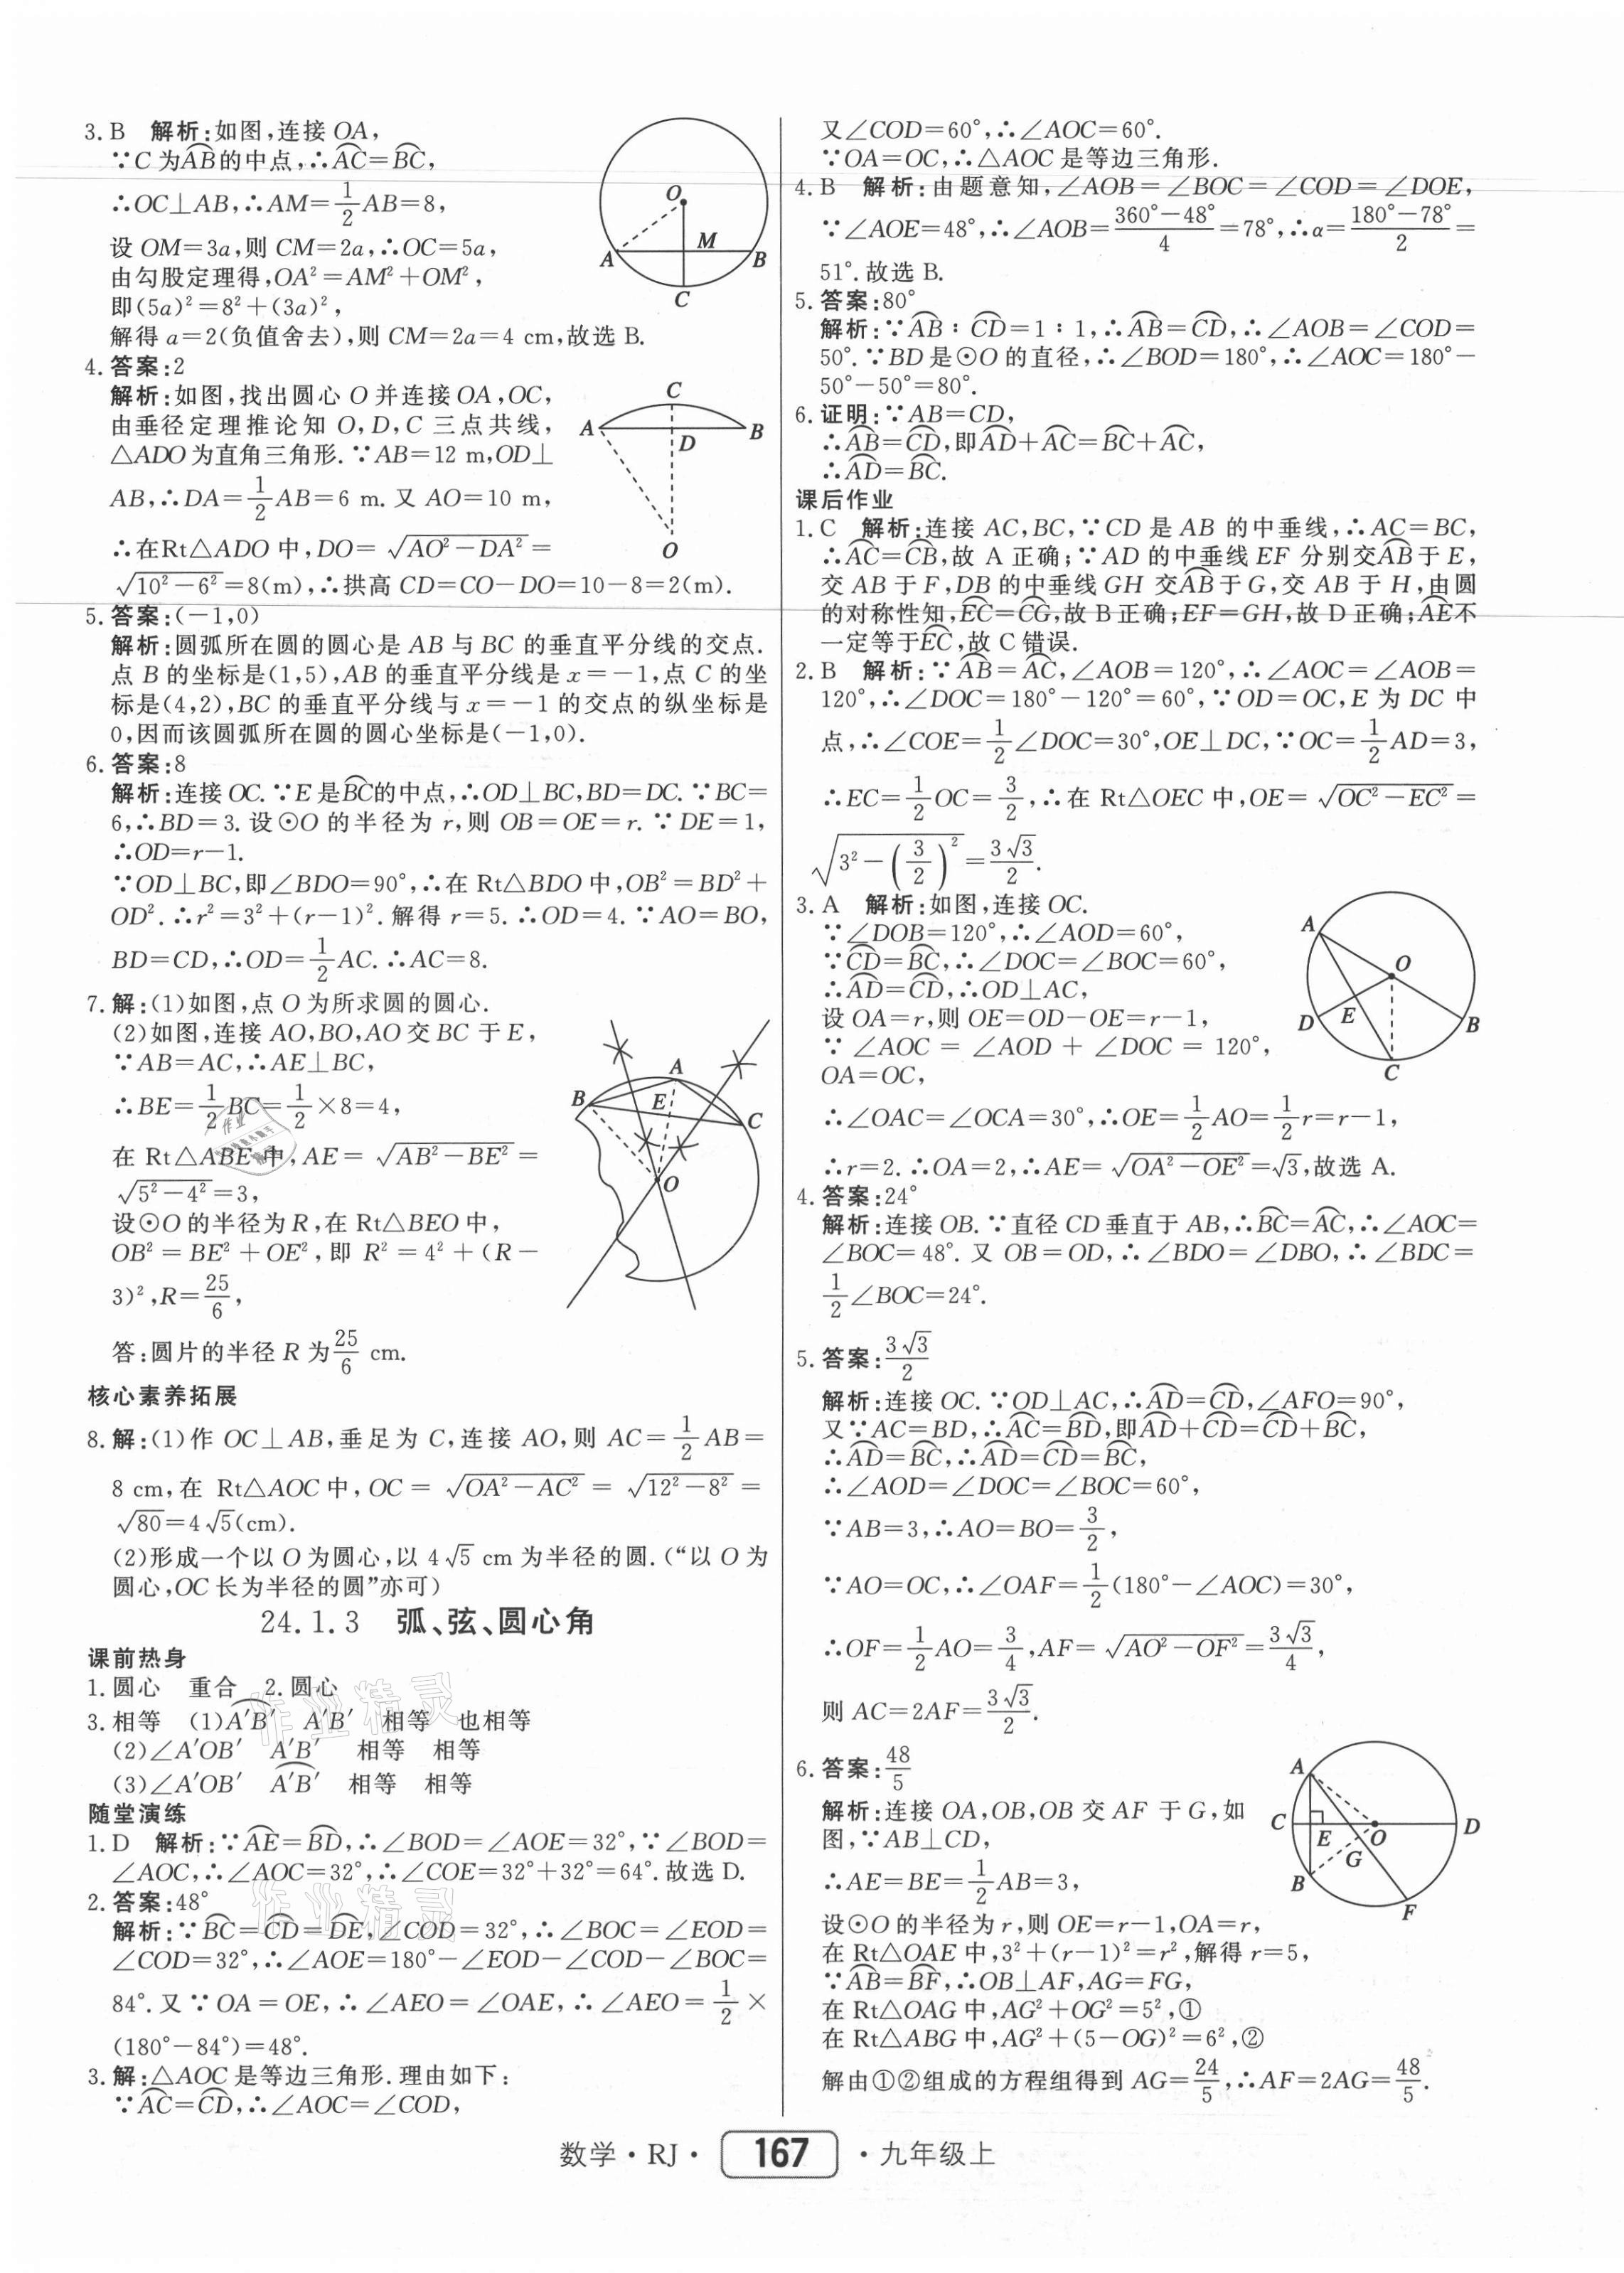 3. B 解析:如图,连接 OA,
∵C 为AB⌒的中点,∴AC⌒=BC⌒,
∴OC⊥AB,∴AM=1/2AB=8,
设 OM=3a,则 CM=2a,∴OC=5a,
由勾股定理得,OA²=AM²+OM²,
即(5a)²=8²+(3a)²,
解得 a=2(负值舍去),则 CM=2a=4 cm,故选 B.
O
M
A
B
C
4. 答案:2
解析:如图,找出圆心 O 并连接 OA,OC,
由垂径定理推论知 O,D,C 三点共线,
△ADO 为直角三角形.∵AB=12 m,OD⊥
AB,∴DA=1/2AB=6 m.又 AO=10 m,
∴在Rt△ADO 中,DO=√(AO²-DA²)=
√(10²-6²)=8(m),∴拱高 CD=CO-DO=10-8=2(m).
C
A
D
B
O
5. 答案:(-1,0)
解析:圆弧所在圆的圆心是 AB 与 BC 的垂直平分线的交点.
点 B 的坐标是(1,5),AB 的垂直平分线是 x=-1,点 C 的坐
标是(4,2),BC 的垂直平分线与 x=-1 的交点的纵坐标是
0,因而该圆弧所在圆的圆心坐标是(-1,0).
6. 答案:8
解析:连接 OC.∵E 是BC⌒的中点,∴OD⊥BC,BD=DC.∵BC=
6,∴BD=3.设⊙O 的半径为 r,则 OB=OE=r.∵DE=1,
∴OD=r-1.
∵OD⊥BC,即∠BDO=90°,∴在 Rt△BDO 中,OB²=BD²+
OD².∴r²=3²+(r-1)².解得 r=5.∴OD=4.∵AO=BO,
BD=CD,∴OD=1/2AC.∴AC=8.
7. 解:(1)如图,点 O 为所求圆的圆心.
(2)如图,连接 AO,BO,AO 交 BC 于 E,
∵AB=AC,∴AE⊥BC,
∴BE=1/2BC=1/2×8=4,
在 Rt△ABE 中,AE=√(AB²-BE²)=
√(5²-4²)=3,
设⊙O 的半径为 R,在 Rt△BEO 中,
OB²=BE²+OE²,即 R²=4²+(R-
3)²,R=25/6,
答:圆片的半径 R 为25/6 cm.
A
B
E
C
O
核心素养拓展
8. 解:(1)作 OC⊥AB,垂足为 C,连接 AO,则 AC=1/2AB=
8 cm,在 Rt△AOC 中,OC=√(OA²-AC²)=√(12²-8²)=
√80=4√5(cm).
(2)形成一个以 O 为圆心,以 4√5 cm 为半径的圆.(“以 O 为
圆心,OC 长为半径的圆”亦可)
24.1.3 弧、弦、圆心角
课前热身
1. 圆心 重合 2. 圆心
3. 相等 (1)A′B′⌒ A′B′ 相等 也相等
(2)∠A′OB′ A′B′ 相等 相等
(3)∠A′OB′ A′B′⌒ 相等 相等
随堂演练
1. D 解析:∵AE⌒=BD⌒,∴∠BOD=∠AOE=32°,∵∠BOD=
∠AOC,∴∠AOC=32°,∴∠COE=32°+32°=64°.故选 D.
2. 答案:48°
解析:∵BC⌒=CD⌒=DE⌒,∠COD=32°,∴∠BOC=∠EOD=
∠COD=32°,∴∠AOE=180°-∠EOD-∠COD-∠BOC=
84°.又∵OA=OE,∴∠AEO=∠OAE,∴∠AEO=1/2×
(180°-84°)=48°.
3. 解:△AOC 是等边三角形.理由如下:
∵AC⌒=CD⌒,∴∠AOC=∠COD,
又∠COD=60°,∴∠AOC=60°.
∵OA=OC,∴△AOC 是等边三角形.
4. B 解析:由题意知,∠AOB=∠BOC=∠COD=∠DOE,
∵∠AOE=48°,∴∠AOB=(360°-48°)/4=78°,∴α=(180°-78°)/2=
51°.故选 B.
5. 答案:80°
解析:∵AB⌒∶CD⌒=1∶1,∴AB⌒=CD⌒,∴∠AOB=∠COD=
50°.∵BD 是⊙O 的直径,∴∠BOD=180°,∴∠AOC=180°-
50°-50°=80°.
6. 证明:∵AB=CD,
∴AB⌒=CD⌒,即AD⌒+AC⌒=BC⌒+AC⌒,
∴AD⌒=BC⌒.
课后作业
1. C 解析:连接 AC,BC,∵CD 是 AB 的中垂线,∴AC=BC,
∴AC⌒=CB⌒,故 A 正确;∵AD 的中垂线 EF 分别交AB⌒于 E,
交 AB 于 F,DB 的中垂线 GH 交AB⌒于 G,交 AB 于 H,由圆
的对称性知,EC⌒=CG⌒,故 B 正确;EF=GH,故 D 正确;AE⌒不
一定等于EC⌒,故 C 错误.
2. B 解析:∵AB⌒=AC⌒,∠AOB=120°,∴∠AOC=∠AOB=
120°,∴∠DOC=180°-120°=60°,∵OD=OC,E 为 DC 中
点,∴∠COE=1/2∠DOC=30°,OE⊥DC,∵OC=1/2AD=3,
∴EC=1/2OC=3/2,∴在 Rt△OEC 中,OE=√(OC²-EC²)=
√(3²-(3/2)²)=3√3/2.
3. A 解析:如图,连接 OC.
∵∠DOB=120°,∴∠AOD=60°,
∵CD⌒=BC⌒,∴∠DOC=∠BOC=60°,
∴AD⌒=CD⌒,∴OD⊥AC,
设 OA=r,则 OE=OD-OE=r-1,
∵∠AOC=∠AOD+∠DOC=120°,
OA=OC,
∴∠OAC=∠OCA=30°,∴OE=1/2AO=1/2r=r-1,
∴r=2.∴OA=2,∴AE=√(OA²-OE²)=√3,故选 A.
A
O
D
E
B
C
4. 答案:24°
解析:连接 OB.∵直径 CD 垂直于 AB,∴BC⌒=AC⌒,∴∠AOC=
∠BOC=48°.又 OB=OD,∴∠BDO=∠DBO,∴∠BDC=
1/2∠BOC=24°.
5. 答案:3√3/2
解析:连接 OC.∵OD⊥AC,∴AD⌒=CD⌒,∠AFO=90°,
又∵AC=BD,∴AC⌒=BD⌒,即AD⌒+CD⌒=CD⌒+BC⌒,
∴AD⌒=BC⌒,∴AD⌒=CD⌒=BC⌒,
∴∠AOD=∠DOC=∠BOC=60°,
∵AB=3,∴AO=BO=3/2,
∵AO=OC,∴∠OAF=1/2(180°-∠AOC)=30°,
∴OF=1/2AO=3/4,AF=√(AO²-OF²)=3√3/4,
则 AC=2AF=3√3/2.
6. 答案:48/5
解析:连接 OA,OB,OB 交 AF 于 G,如
图,∵AB⊥CD,
∴AE=BE=1/2AB=3,
设⊙O 的半径为 r,则 OE=r-1,OA=r,
在 Rt△OAE 中,3²+(r-1)²=r²,解得 r=5,
∵AB⌒=BF⌒,∴OB⊥AF,AG=FG,
在 Rt△OAG 中,AG²+OG²=5²,①
在 Rt△ABG 中,AG²+(5-OG)²=6²,②
解由①②组成的方程组得到 AG=24/5,∴AF=2AG=48/5.
A
C
E
O
D
G
B
F
作业精灵
作业精灵
数学·RJ· 167 ·九年级上